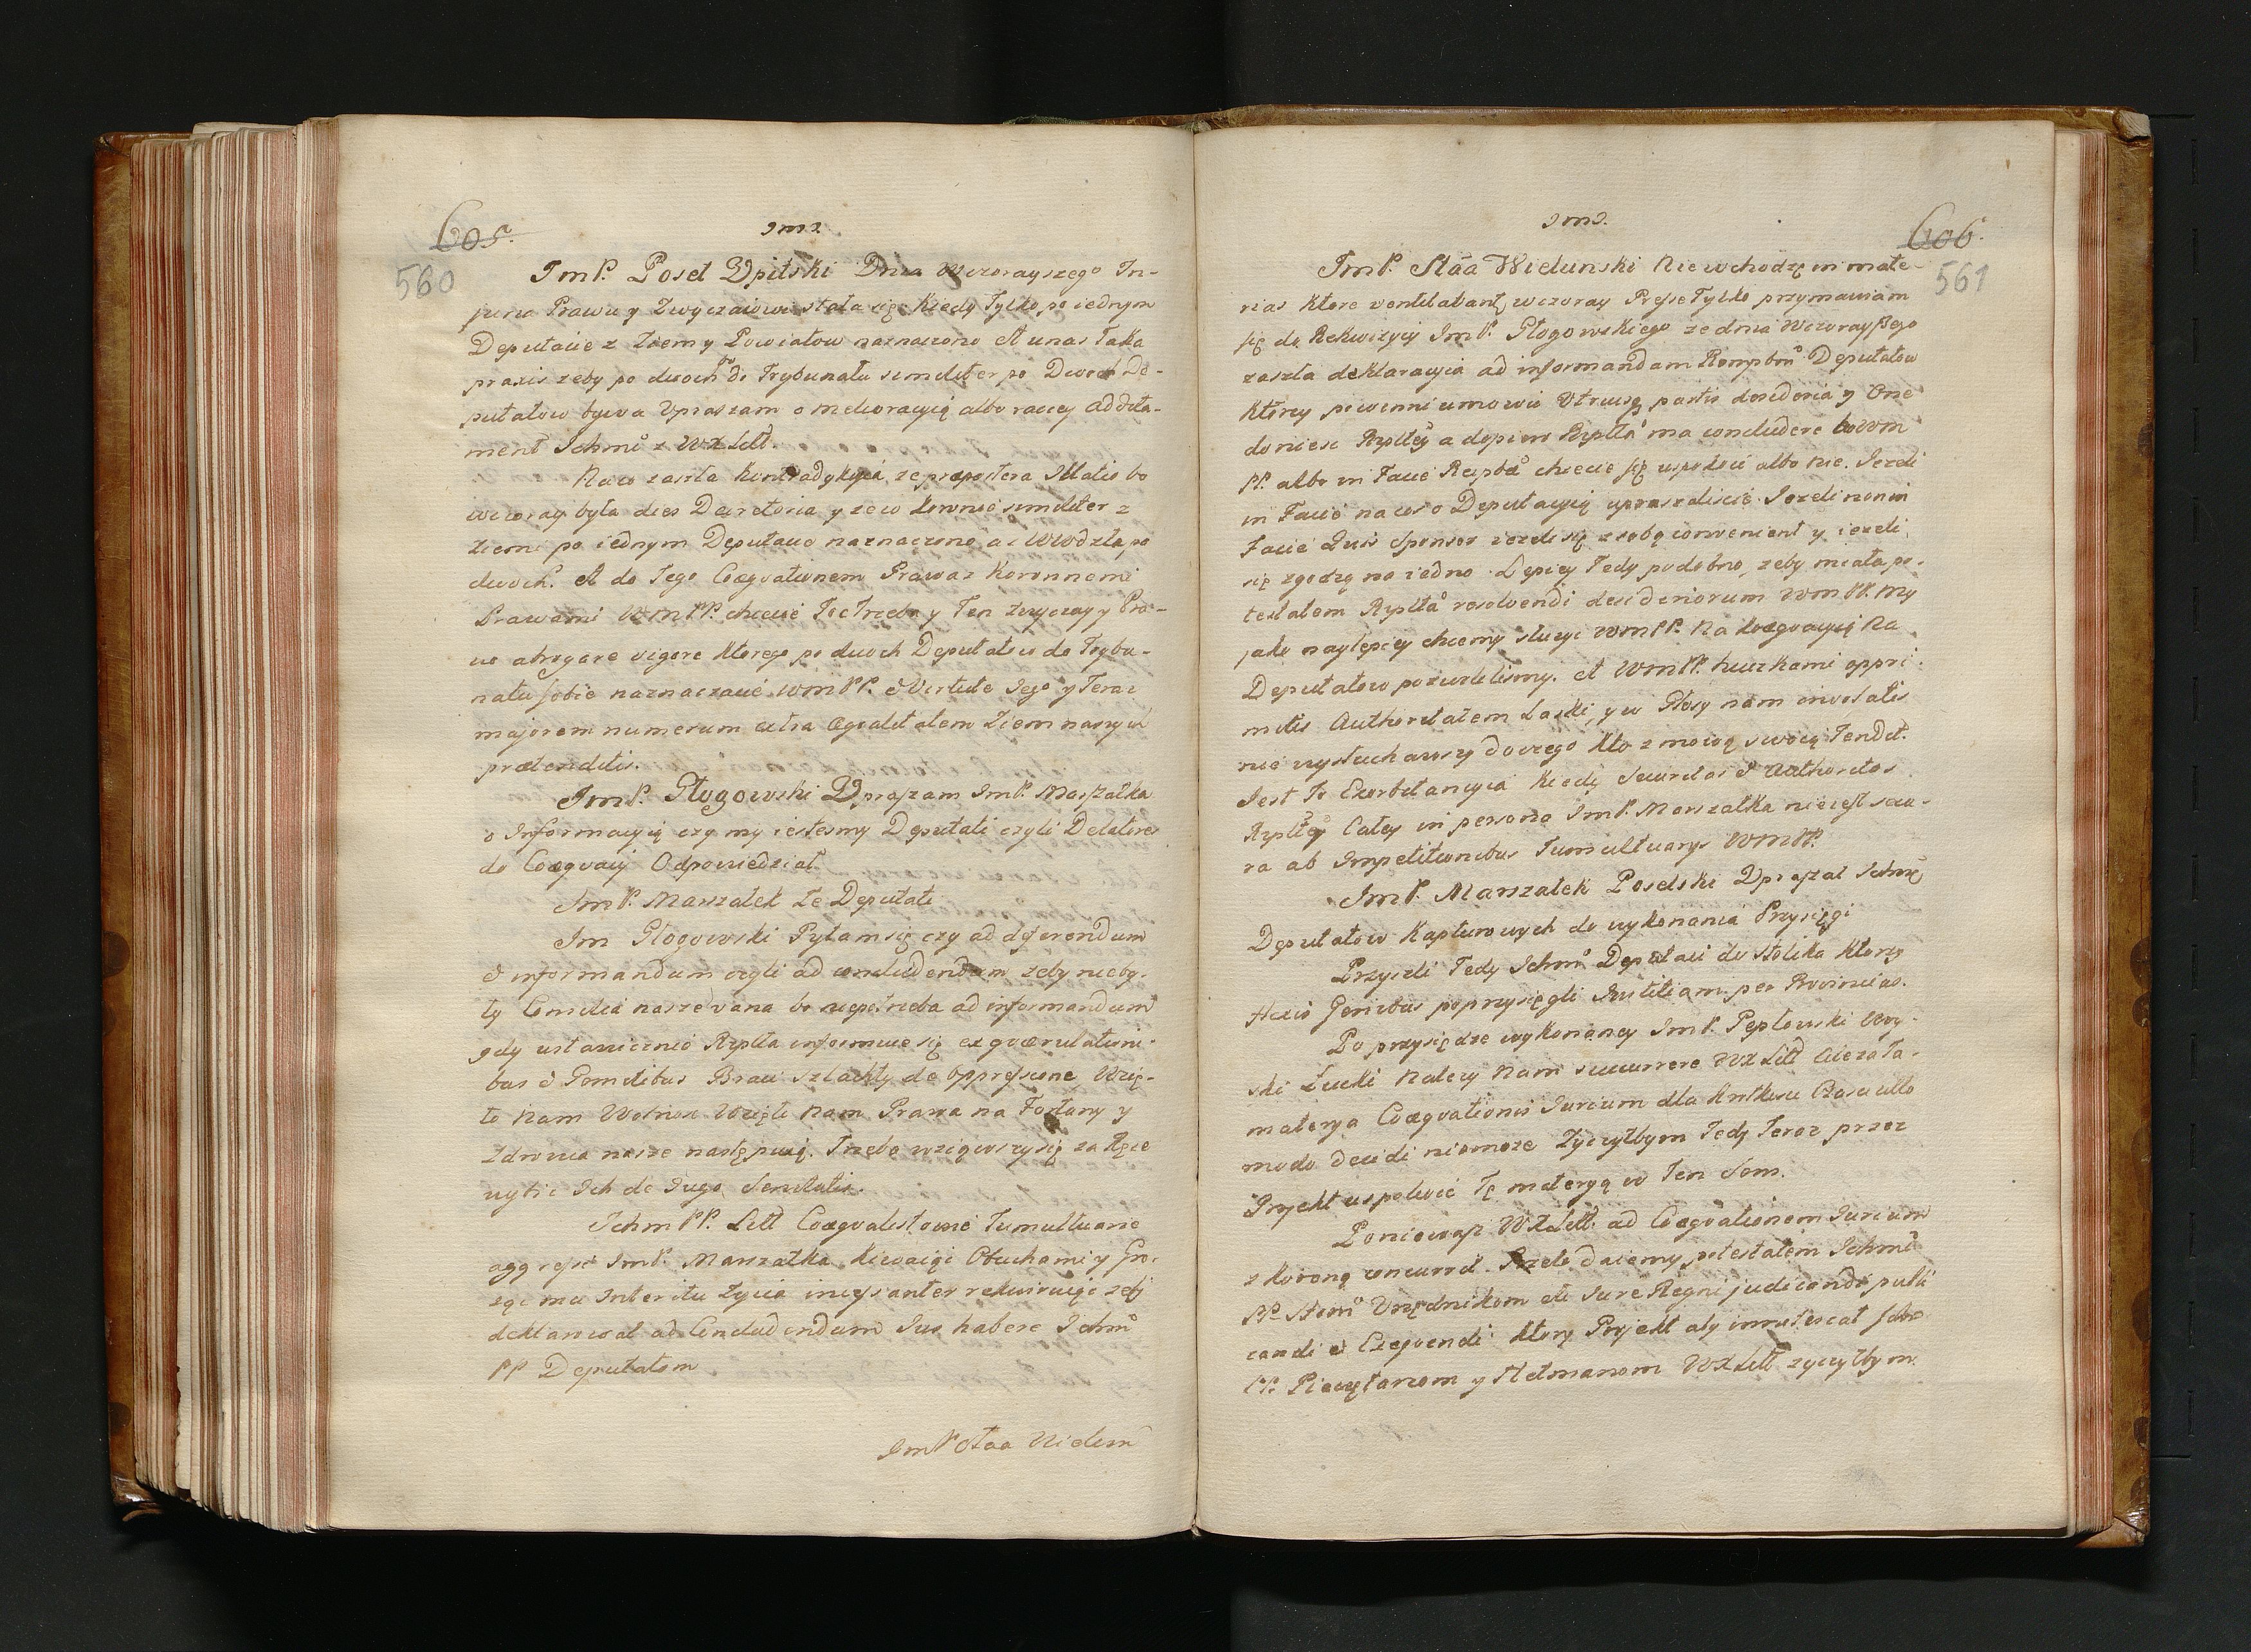 605.
560
Jmı.
JmP. Poseł Upitski Dnia Wczorayszego In-
juria Prawu y Zwyczaiowi stała się kiedy Tylko po iednym
Deputacie z Ziem y Powiatow naznaczono A unas Taka
praxis zeby po dwoch bo do Trybunału similiter po Dwoch De-
putatow bywa Upraszam o melioracyią albo raczey addita-
ment Ichmċ z WXLitt.
Na co zaszła Kontradykcyia, ze præpostera Illatio bo
wczoray była dies Decretoria y ze w Koronie similiter z
Ziemi po iednym Deputacie naznaczono, a z WWdztw po
dwoch. A do Tego Coæquationem Prawa z Koronnemi
Prawami WmPP. chcecie To Trzeba y Ten Zwyczay y Pra-
wo abrogare vigore ktorego po dwoch Deputatow do Trybu-
nału sobie naznaczacie WmPP. & Virtute Jego y Teraz
majorem numerum extra Æqualitatem Ziem naszych
prætenditis.
JmP. Głogowski Upraszam JmP. Marszałka
o Informacyią czy my iestesmy Deputati czyli Delatores
do Coæquacyi Odpowiedział
JmP. Marszałek Ze Deputati
Jm Głogowski Pytam się czy ad deferendum
& informandum czyli ad concludendum zeby nieby-
ły Consilia nasze vana bo niepotrzeba ad informandum
gdy ustawicznie Rzplta informuie się ex quærulationi-
bus & Gemitibus Braci Szlachty de oppressione Wzię-
to Nam Wolnosc Wzięto Nam Prawa na Fortuny y
Zdrowia nasze następuią. Trzeba wziąwszy się za Ręce
uytic Ich de Iugo Servitutis.
IchmPP. Litt Coæqualistowie Tumultuarie
aggressi JmP. Marszałka kiwaiąc Obuchami y Gro-
ząc mu Interitu Zycia incessanter rekwiruiąc zeby
deklarował ad Concludendum Ius habere Ichmċ
PP Deputatom
JmP Staa Wielun

Jmı.
606.
561
JmP. Stãa Wielunski Nie wchodzę in mate-
rias ktore ventilabant wczoray Presse Tylko przymawiam
się do Rekwizycyi JmP. Głogowskiego ze dnia Wczorayszego
zaszła deklaracyia ad informandam Rempbm Deputatow
ktorzy powinni umowic Utriusq partis desideria y One
doniesc Rzpltey a dopiero Rzplta ma concludere bo Wm
PP. albo in Facie Reipbæ chcecie się uspokoic albo nie. Jezeli
in Facie na cos o Deputacyią upraszaliscie Jezeli non in
Facie Quis Sponsor iezeli się z sobą convenient y iezeli
się zgodzą na iedno. Lepiey Tedy podobno, zeby miała po-
testatem Rzplta resolvendi desideriorum WmPP. My
jako naylepiey chcemy słuzyc WmPP. Na koæquacyią Na
Deputatow pozwolilismy. A WmPP. huczkami oppri-
mitis Authoritatem Laski, y w Głosy nam involatis
nie wysłuchawszy do czego kto z mową swoią Tendit.
Jest To Exorbitancyia kiedy Securitas & Authoritas
Rzpltey Całey in persona JmP. Marszałka nieiest secu-
ra ab Impetitionibus Tumultuarys WmPP.
JmP. Marszałek Poselski Upraszał Ichmċ
Deputatow Kapturowych do wykonania Przysięgi
Przyszli Tedy Ichmċ Deputaci do stolika ktorzy
Flexis Genibus poprzysięgli Justitiam per Provincias.
Po przysiędze wykonaney JmP. Pepłowski Woy-
ski Łucki Nalezy Nam succurrere WXLitt Aleza Ta-
materya Coæquationis Iurium dla krotkosci Czasu ullo
modo decidi niemoze Zyczyłbym Tedy Teraz przez
Projekt uspokoic Tę materyą w Ten Sens.
Poniewaz WXLitt. ad Coæquationem Iurium
z koroną concurrit Przeto Daiemy potestatem Ichmċ
PP. Urzędnikom ele Iure Regni judicandi publi
candi & Exequendi ktory Projekt aby innotescat Ichmċ
PP. Pieczętarzom y Hetmanom WXLitt zyczyłbym.